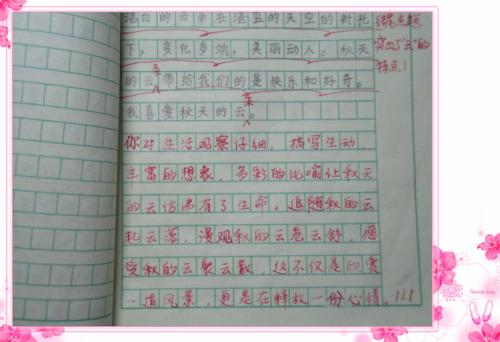 洁白的云朵在湛蓝的天空的衬托
下，变化多端，美丽动人。秋天
的云朵带给我们的是快乐和好奇。
我喜爱秋天的云朵。
结尾点题
突出了"云"的
特点！
你对生活观察仔细，描写生动，
丰富的想象，多彩的比喻让秋天
的云仿佛有了生命。追随秋的云
起云落，漫观秋的云卷云舒，感
受秋的云聚云散，这不仅是欣赏
一道风景，更是在释放一份心情。